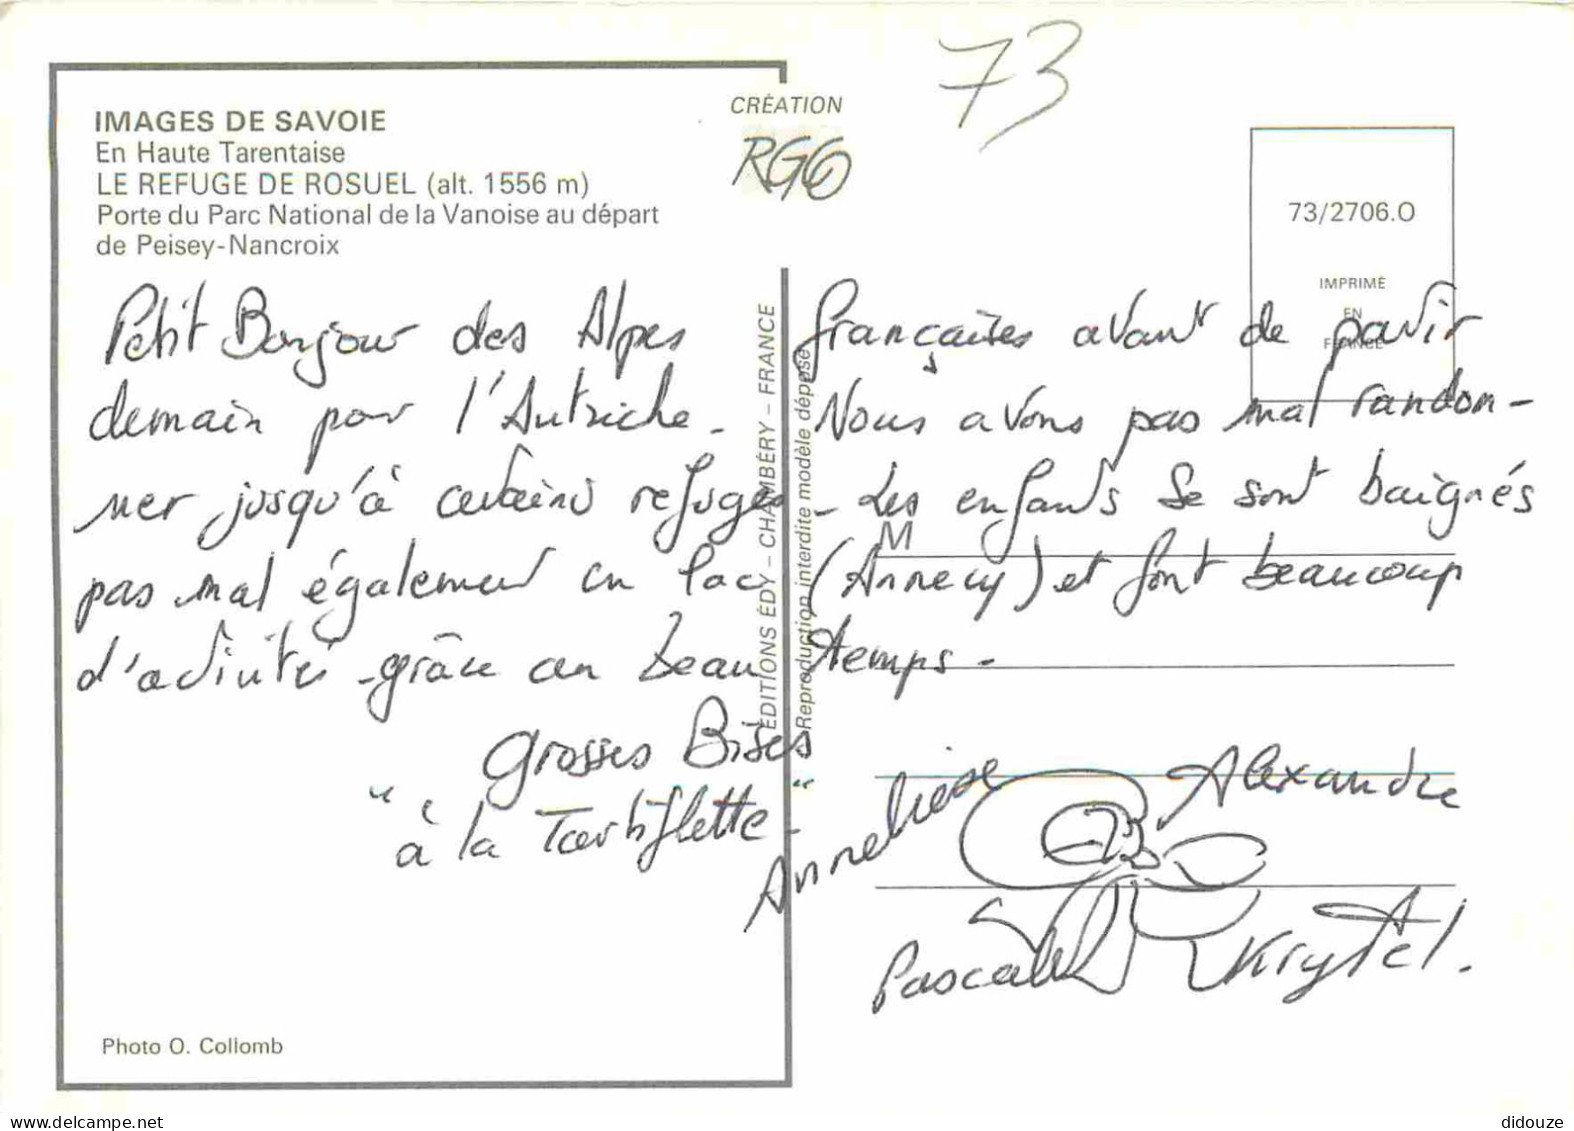 73
IMAGES DE SAVOIE
En Haute Tarentaise
LE REFUGE DE ROSUEL (alt. 1556 m)
Porte du Parc National de la Vanoise au départ
de Peisey-Nancroix
CRÉATION
73/2706.O
IMPRIMÉ
EN
FRANCE
Petit Bonjour des Alpes françaises avant de partir
demain pour l'Autriche. Nous avons pas mal randon-
ner jusqu'à certains refuges - Les enfants se sont baignés
pas mal également en lac (Annecy) et font beaucoup
d'activités - grâce au beau temps -
grosses Bises
" à la Tartiflette - "
Anneliese
Alexandre
Pascale
Krystel.
M
ÉDITIONS ÉDY - CHAMBÉRY - FRANCE
Reproduction interdite modèle déposé
Photo O. Collomb
didouze